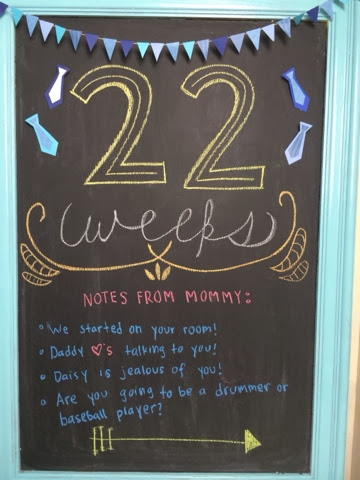 22
weeks
NOTES FROM MOMMY:
We started on your room!
Daddy ♡'s talking to you!
Daisy is jealous of you!
Are you going to be a drummer or
baseball player?